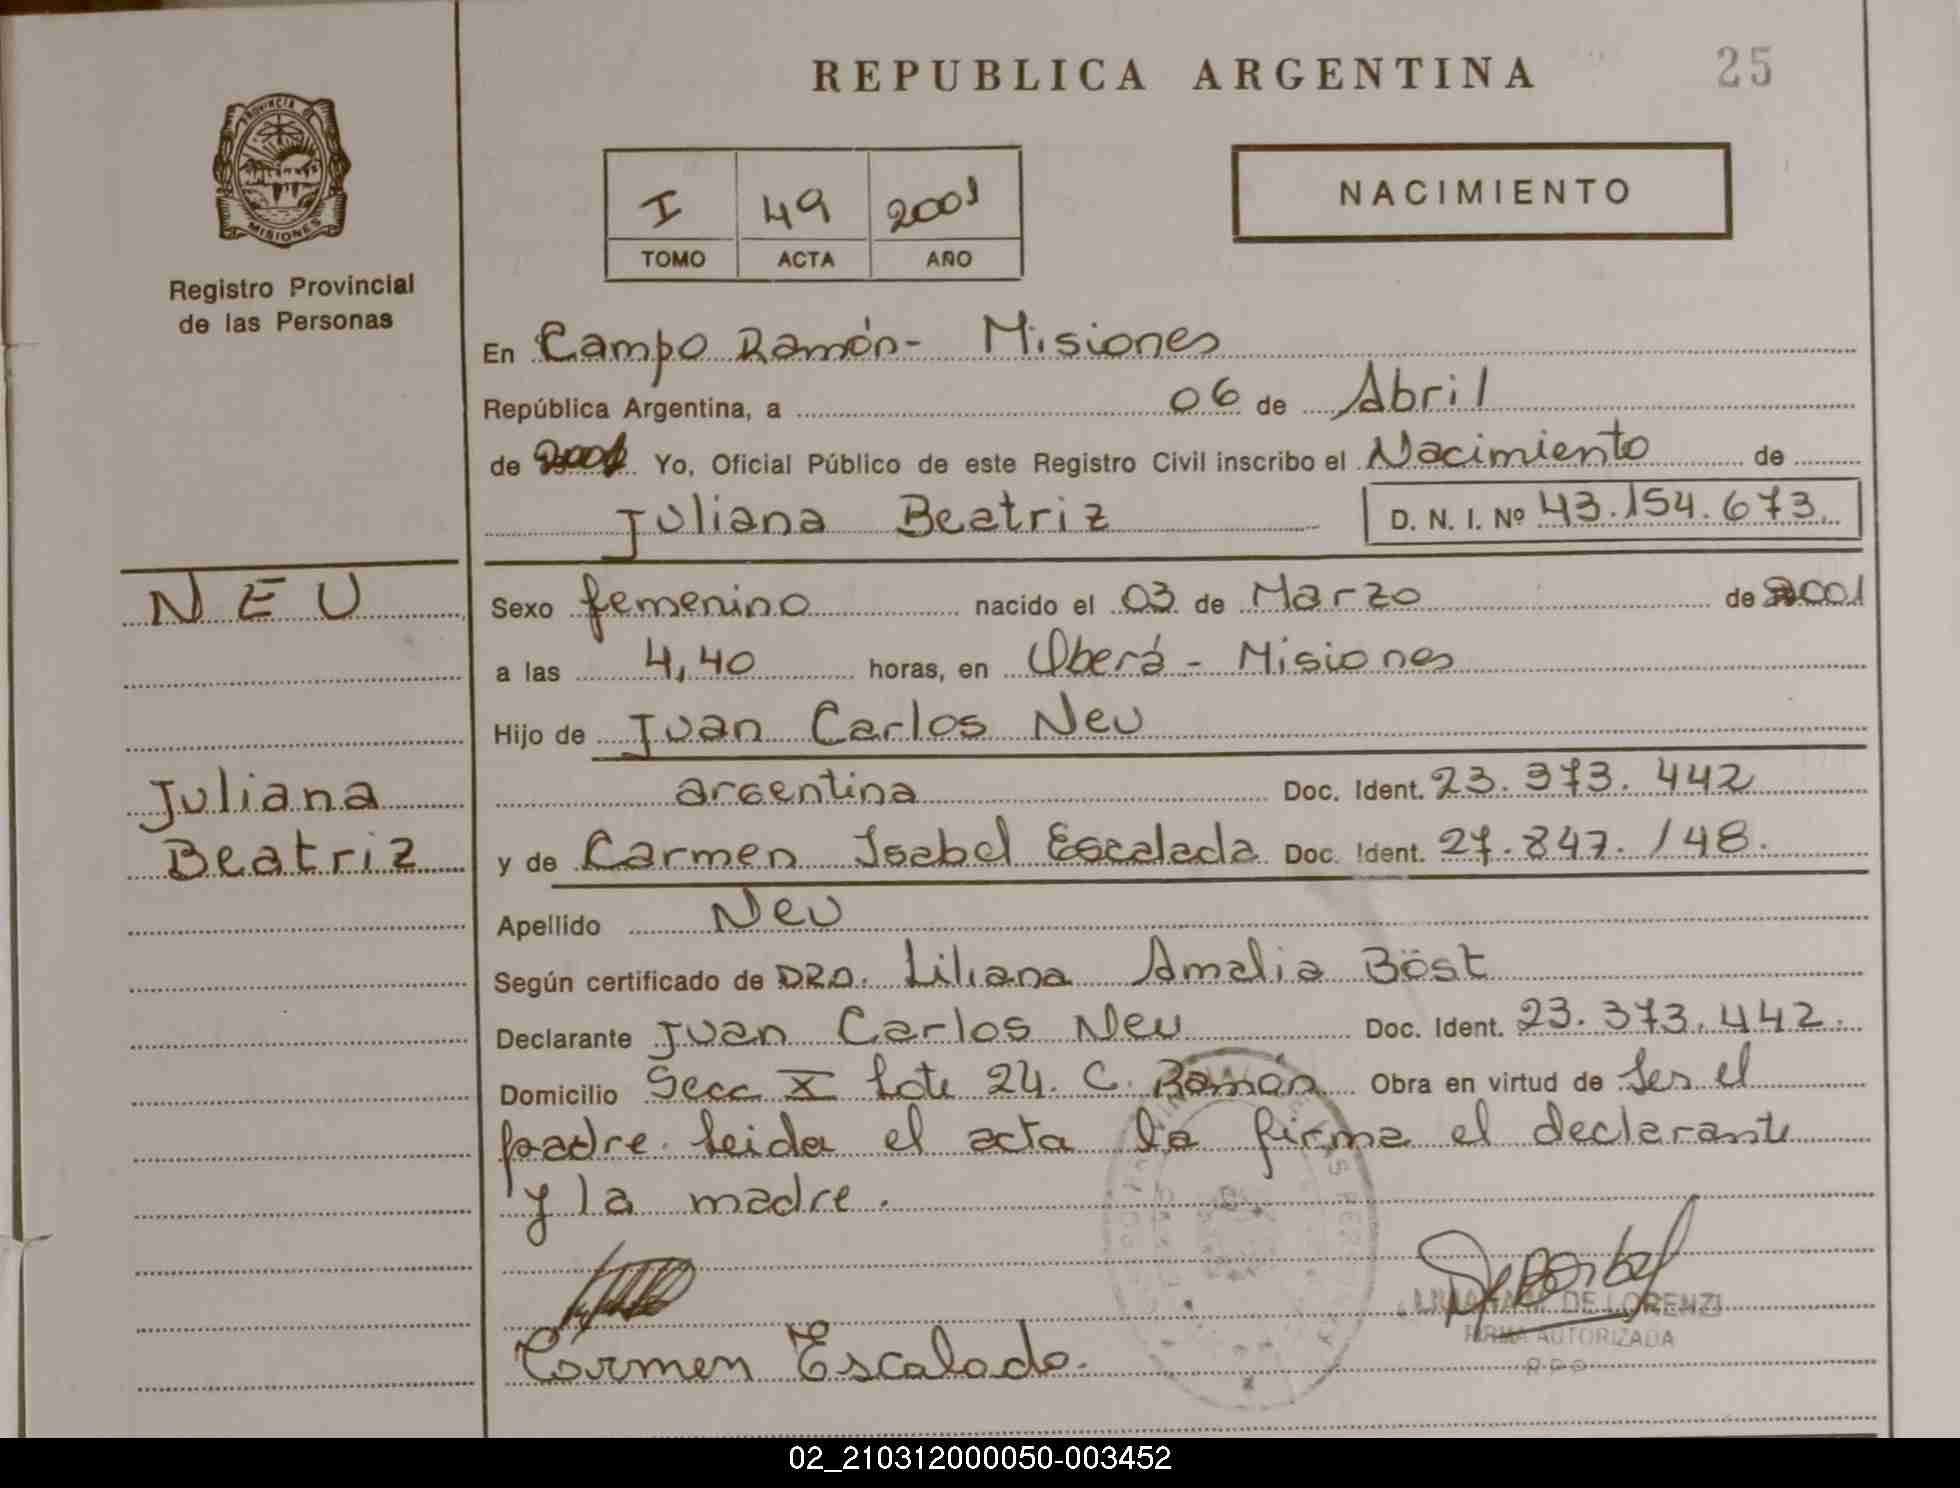 REPUBLICA ARGENTINA
25
PROVINCIA DE
MISIONES
Registro Provincial
de las Personas
I 49 2001
TOMO ACTA AÑO
NACIMIENTO
En Campo Ramón- Misiones
República Argentina, a 06 de Abril
de 2001 Yo, Oficial Público de este Registro Civil inscribo el Nacimiento de
Juliana Beatriz D. N. I. Nº 43.154.673
NEU
Sexo femenino nacido el 03 de Marzo de 2001
a las 4,40 horas, en Oberá - Misiones
Hijo de Juan Carlos Neu
Juliana
argentina Doc. Ident. 23.373.442
Beatriz
y de Carmen Isabel Escalada Doc. Ident. 27.847.148.
Apellido Neu
Según certificado de DRA. Liliana Amalia Böst
Declarante Juan Carlos Neu Doc. Ident. 23.373.442.
Domicilio Secc X Lote 24. C. Ramón Obra en virtud de Ser el
padre. Leida el acta la firma el declarante
y la madre.
DE LORENZI
FIRMA AUTORIZADA
Carmen Escalada.
02_210312000050-003452